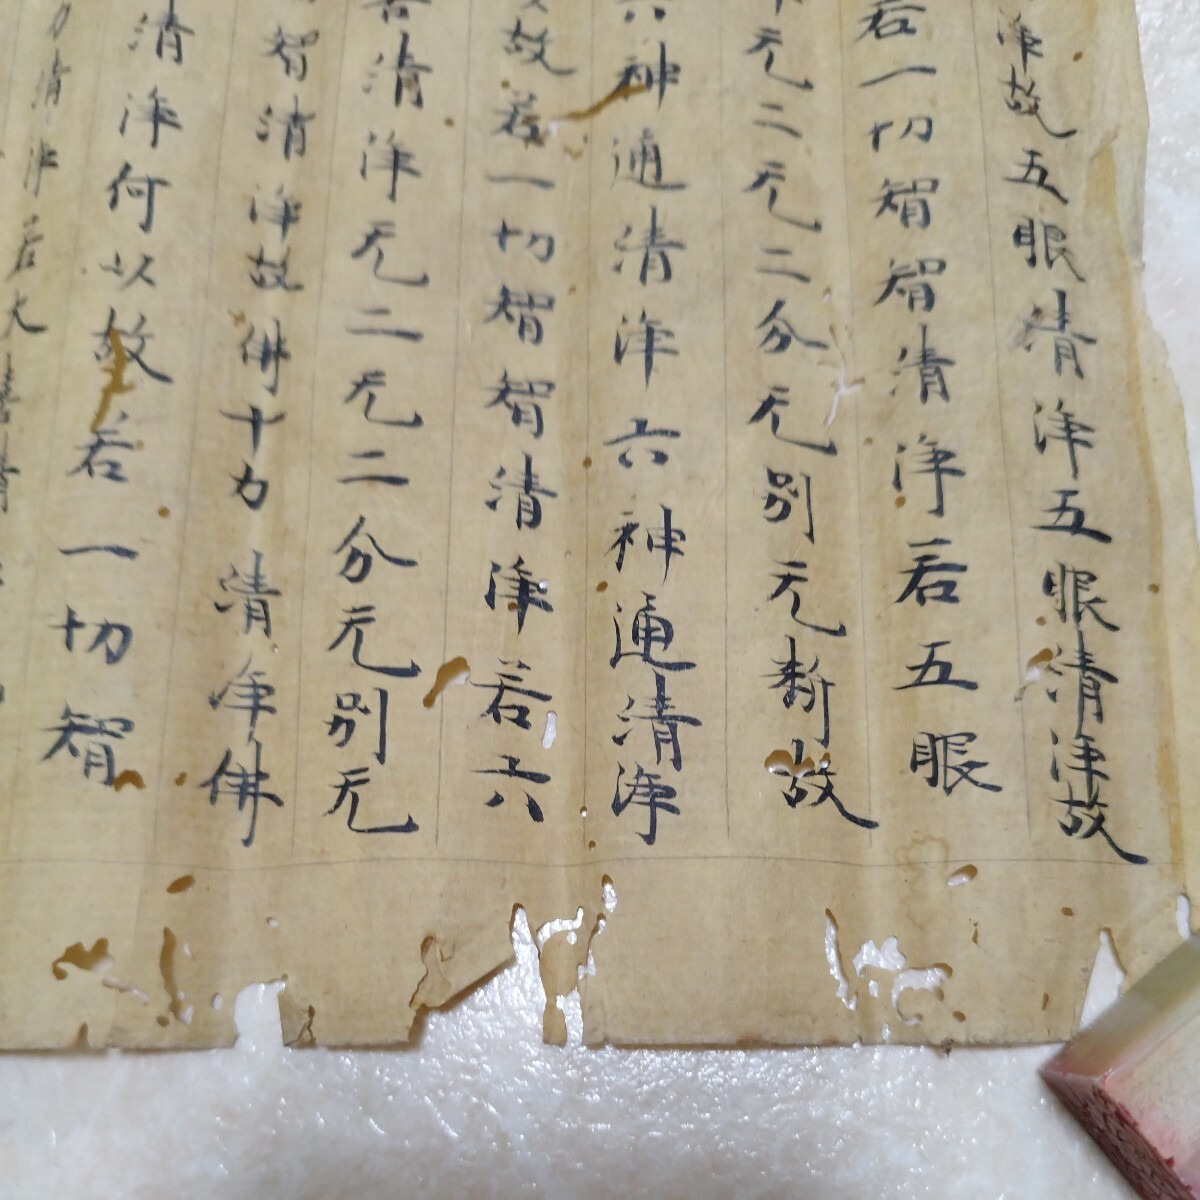 淨故五眼清淨五眼清淨故
若一切智智清淨若五眼
无二无二分无别无断故
神通清淨六神通清淨
故若一切智智清淨若六
清淨无二无二分无别无
智清淨故佛十力清淨佛
清淨何以故若一切智
力清淨若大